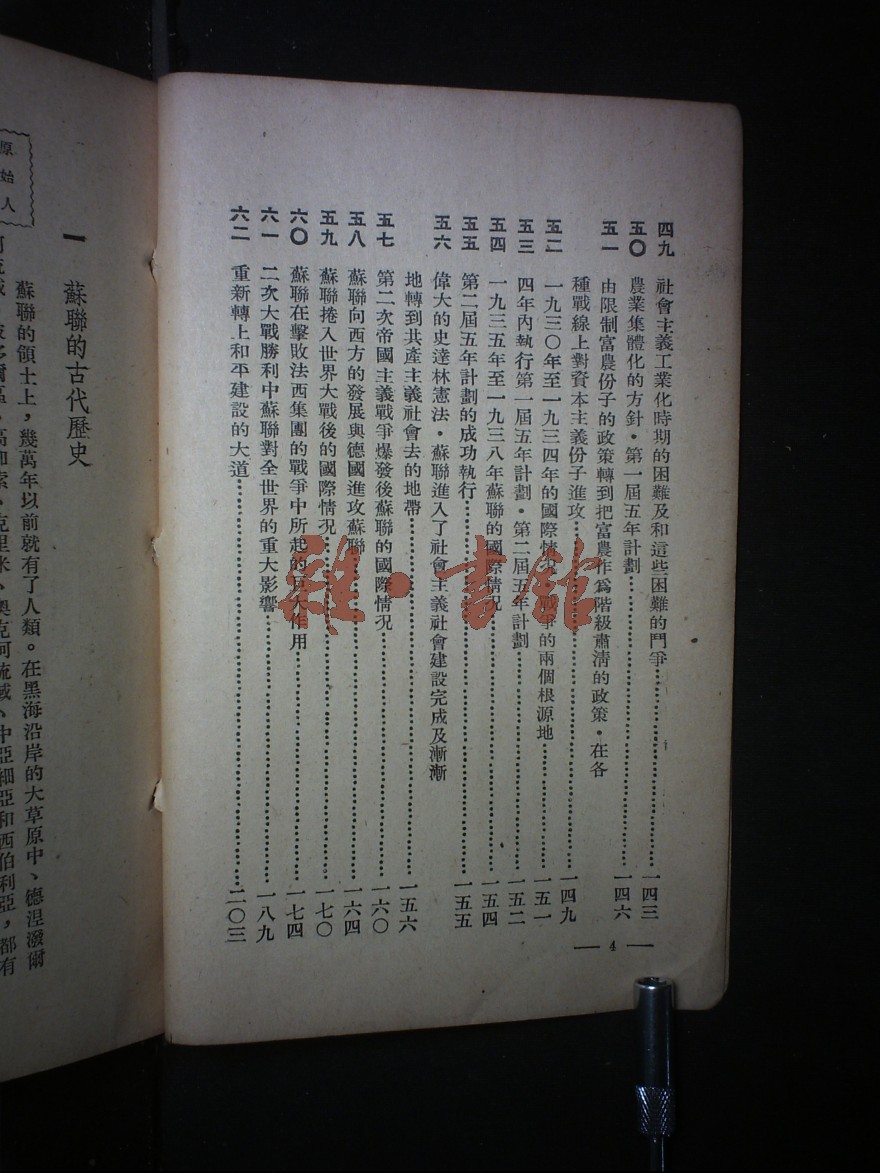 四九　社會主義工業化時期的困難及和這些困難的鬥爭……一四三
五〇　農業集體化的方針・第一屆五年計劃……一四六
五一　由限制富農份子的政策轉到把富農作爲階級肅清的政策・在各
種戰線上對資本主義份子進攻……一四九
五二　一九三〇年至一九三四年的國際情況・戰爭的兩個根源地……一五一
五三　四年內執行第一屆五年計劃・第二屆五年計劃……一五二
五四　一九三五年至一九三八年蘇聯的國際情況……一五四
五五　第二屆五年計劃的成功執行……一五五
五六　偉大的史達林憲法・蘇聯進入了社會主義社會建設完成及漸漸
地轉到共產主義社會去的地帶……一五六
五七　第二次帝國主義戰爭爆發後蘇聯的國際情況……一六〇
五八　蘇聯向西方的發展與德國進攻蘇聯……一六四
五九　蘇聯捲入世界大戰後的國際情況……一七〇
六〇　蘇聯在擊敗法西集團的戰爭中所起的巨大作用……一七四
六一　二次大戰勝利中蘇聯對全世界的重大影響……一八九
六二　重新轉上和平建設的大道……二〇三
— 4 —
雜・書館
一　蘇聯的古代歷史
原始人
蘇聯的領土上，幾萬年以前就有了人類。在黑海沿岸的大草原中、德涅潑爾
高加索、克里米、奧克河流域、中亞細亞和西伯利亞，都有